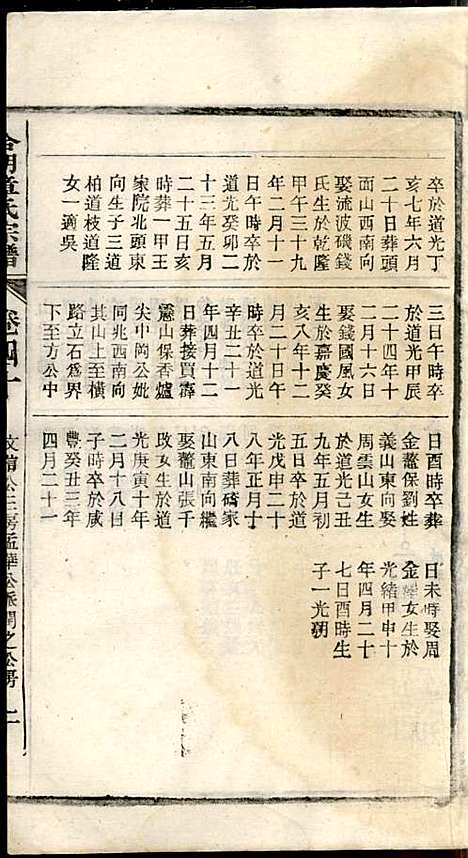 卒於道光丁
亥七年六月
二十日葬頭
面山西南向
娶流波磯錢
氏生於乾隆
甲午三十九
年二月十一
日午時卒於
道光癸卯二
十三年五月
二十五日亥
時葬一甲王
家院北頭東
向生子三道
柏道枝道隆
女一適吳
三日午時卒
於道光甲辰
二十四年十
二月十六日
娶錢國風女
生於嘉慶癸
亥八年十二
月二十日午
時卒於道光
辛丑二十一
年四月十二
日葬接買霹
靂山保香爐
尖中岡公妣
同兆西南向
其山上至橫
路立石為界
下至方公中
日酉時卒葬
金鰲保劉姓
義山東向娶
周雲山女生
於道光己丑
九年五月初
五日卒於道
光戊申二十
八年正月十
八日葬碕家
山東南向繼
娶鰲山張千
玫女生於道
光庚寅十年
二月十八日
子時卒於咸
豐癸丑三年
四月二十一
日未時娶周
金女生於
光緒甲申十
年四月二十
七日酉時生
子一光朝
章氏宗譜
卷四十
公三房孟華公派開之公房 二